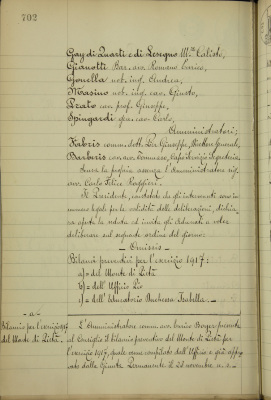 702
Gay di Quarti e di Lesegno M.se Calisto,
Gianotti Bar. avv. Romano Enrico,
Gonella not. ing. Andrea,
Masino not. ing. cav. Giusto,
Prato cav. prof. Giuseppe,
Spingardi gen. cav. Carlo,
Amministratori;
Fabris comm. dott. Giuseppe, Direttore Generale,
Barberis cav. avv. Capo Servizio Segreteria.
Scusa la propria assenza l'Amministratore sig.
avv. Carlo Felice Roggieri.
Il Presidente, constatato che gli intervenuti sono in
numero legale per la validità delle deliberazioni, dichia-
ra aperta la seduta ed invita gli Adunati a voler
deliberare sul seguente ordine del giorno:
— Omissis —
Bilanci preventivi per l'esercizio 1917:
a) = del Monte di Pietà
b) = dell'Ufficio Pio
c) = dell'eduatorio Duchessa Isabella. —
— a —
Bilancio per l'esercizio 1917
del Monte di Pietà.
L'Amministratore comm. avv. Enrico presenta
al Consiglio il bilancio preventivo del Monte di Pietà per
l'esercizio 1917, quale venne compilato dall'Ufficio e già appro-
vato dalla Giunta Permanente il 22 novembre u. s. —